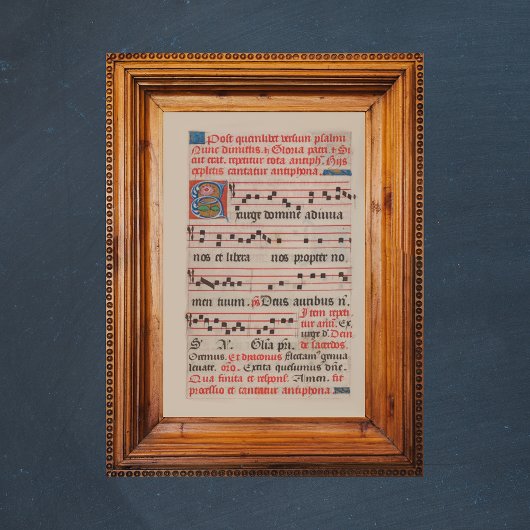 Post quenlibet versum psalmi
Nunc dimittis. & Gloria patri. & Si
cut erat. repetitur tota antiph. Hijs
expletis cantatur antiphona.
Exurge domine adiuva
nos et libera nos propter no
men tuum. ps Deus auribus n.
Item repeti
tur an. Ex
urge d. Dein
S. A. Glia pri. de sacerdos.
Oremus. Et diaconus flectam genua
levate. oro. Excita quesumus dne.
Qua finita et respons. Amen. fit
processio et cantatur antiphona